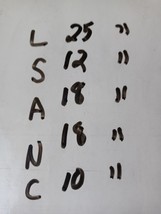 L 25 "
S 12 "
A 18 "
N 18 "
C 10 "